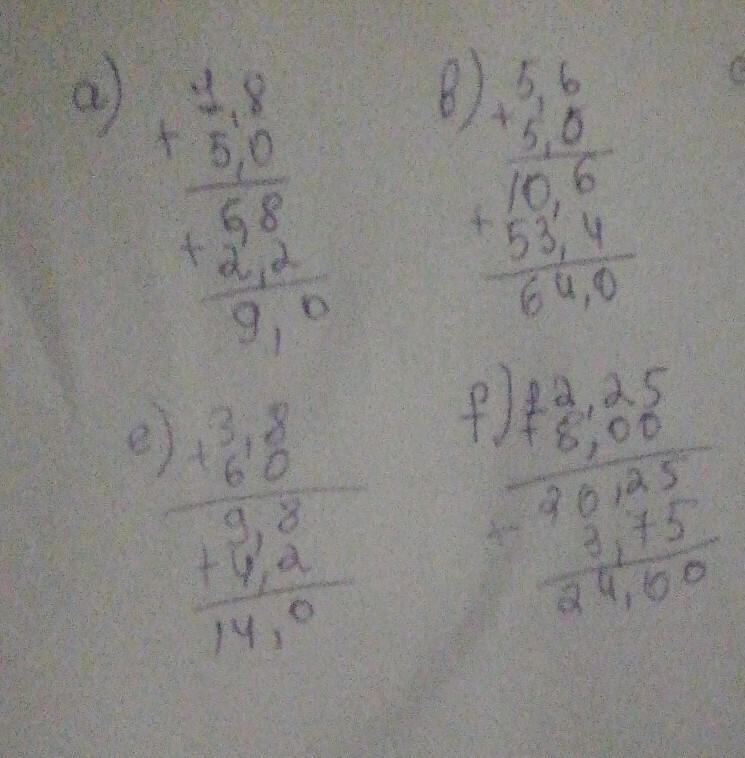 a) 1,8
+ 5,0
6,8
+ 2,2
9,0
b) 5,6
+ 5,0
10,6
+ 53,4
64,0
e) 3,8
+ 6 0
9,8
+ 4,2
14,0
f) 12,25
+ 8,00
20,25
+ 3,75
24,00